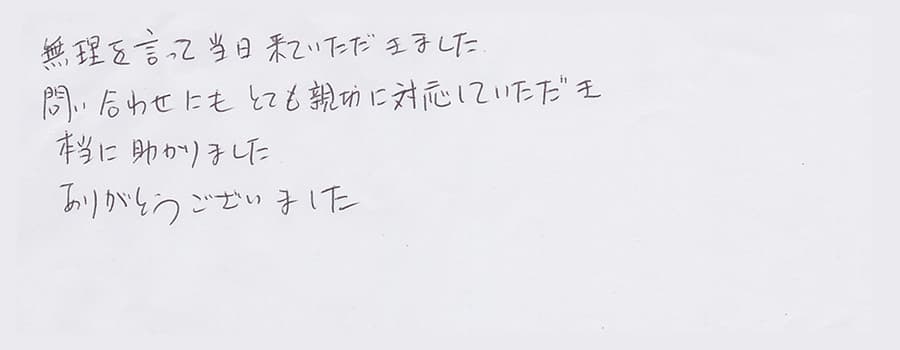 無理を言って当日来ていただきました
問い合わせにもとても親切に対応していただき
本当に助かりました
ありがとうございました